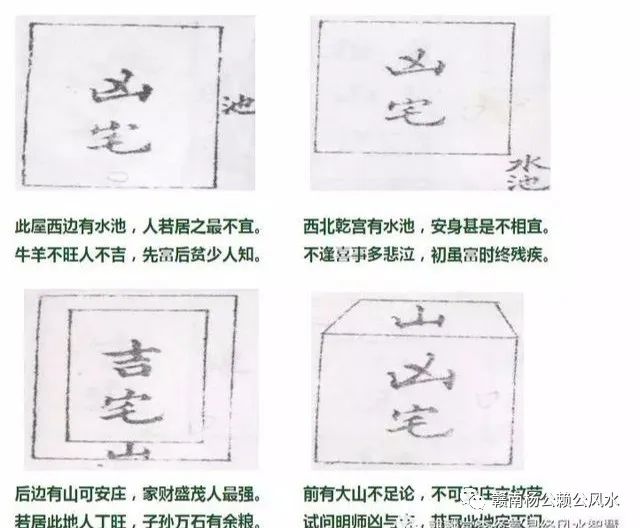 凶宅
池
凶宅
水池
此屋西边有水池，人若居之最不宜。
牛羊不旺人不吉，先富后贫少人知。
西北乾宫有水池，安身甚是不相宜。
不逢喜事多悲泣，初虽富时终残疾。
吉宅
山
山
凶宅
后边有山可安庄，家财盛茂人最强。
若居此地人丁旺，子孙万石有余粮。
前有大山不足论，不可安庄立
试问明师凶与吉，
赣南杨公濑公风水